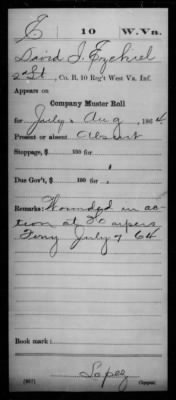 E 10 W.Va.
David J. Ezekiel
2d Lt, Co. E, 10 Reg't West Va. Inf.
Appears on
Company Muster Roll
for July & Aug, 1864
Present or absent Absent
Stoppage, $ 100 for
Due Gov't, $ 100 for
Remarks: Wounded in ac-
tion at Harpers
Ferry July 7 64
Book mark:
Lopez
(857) Copyist.